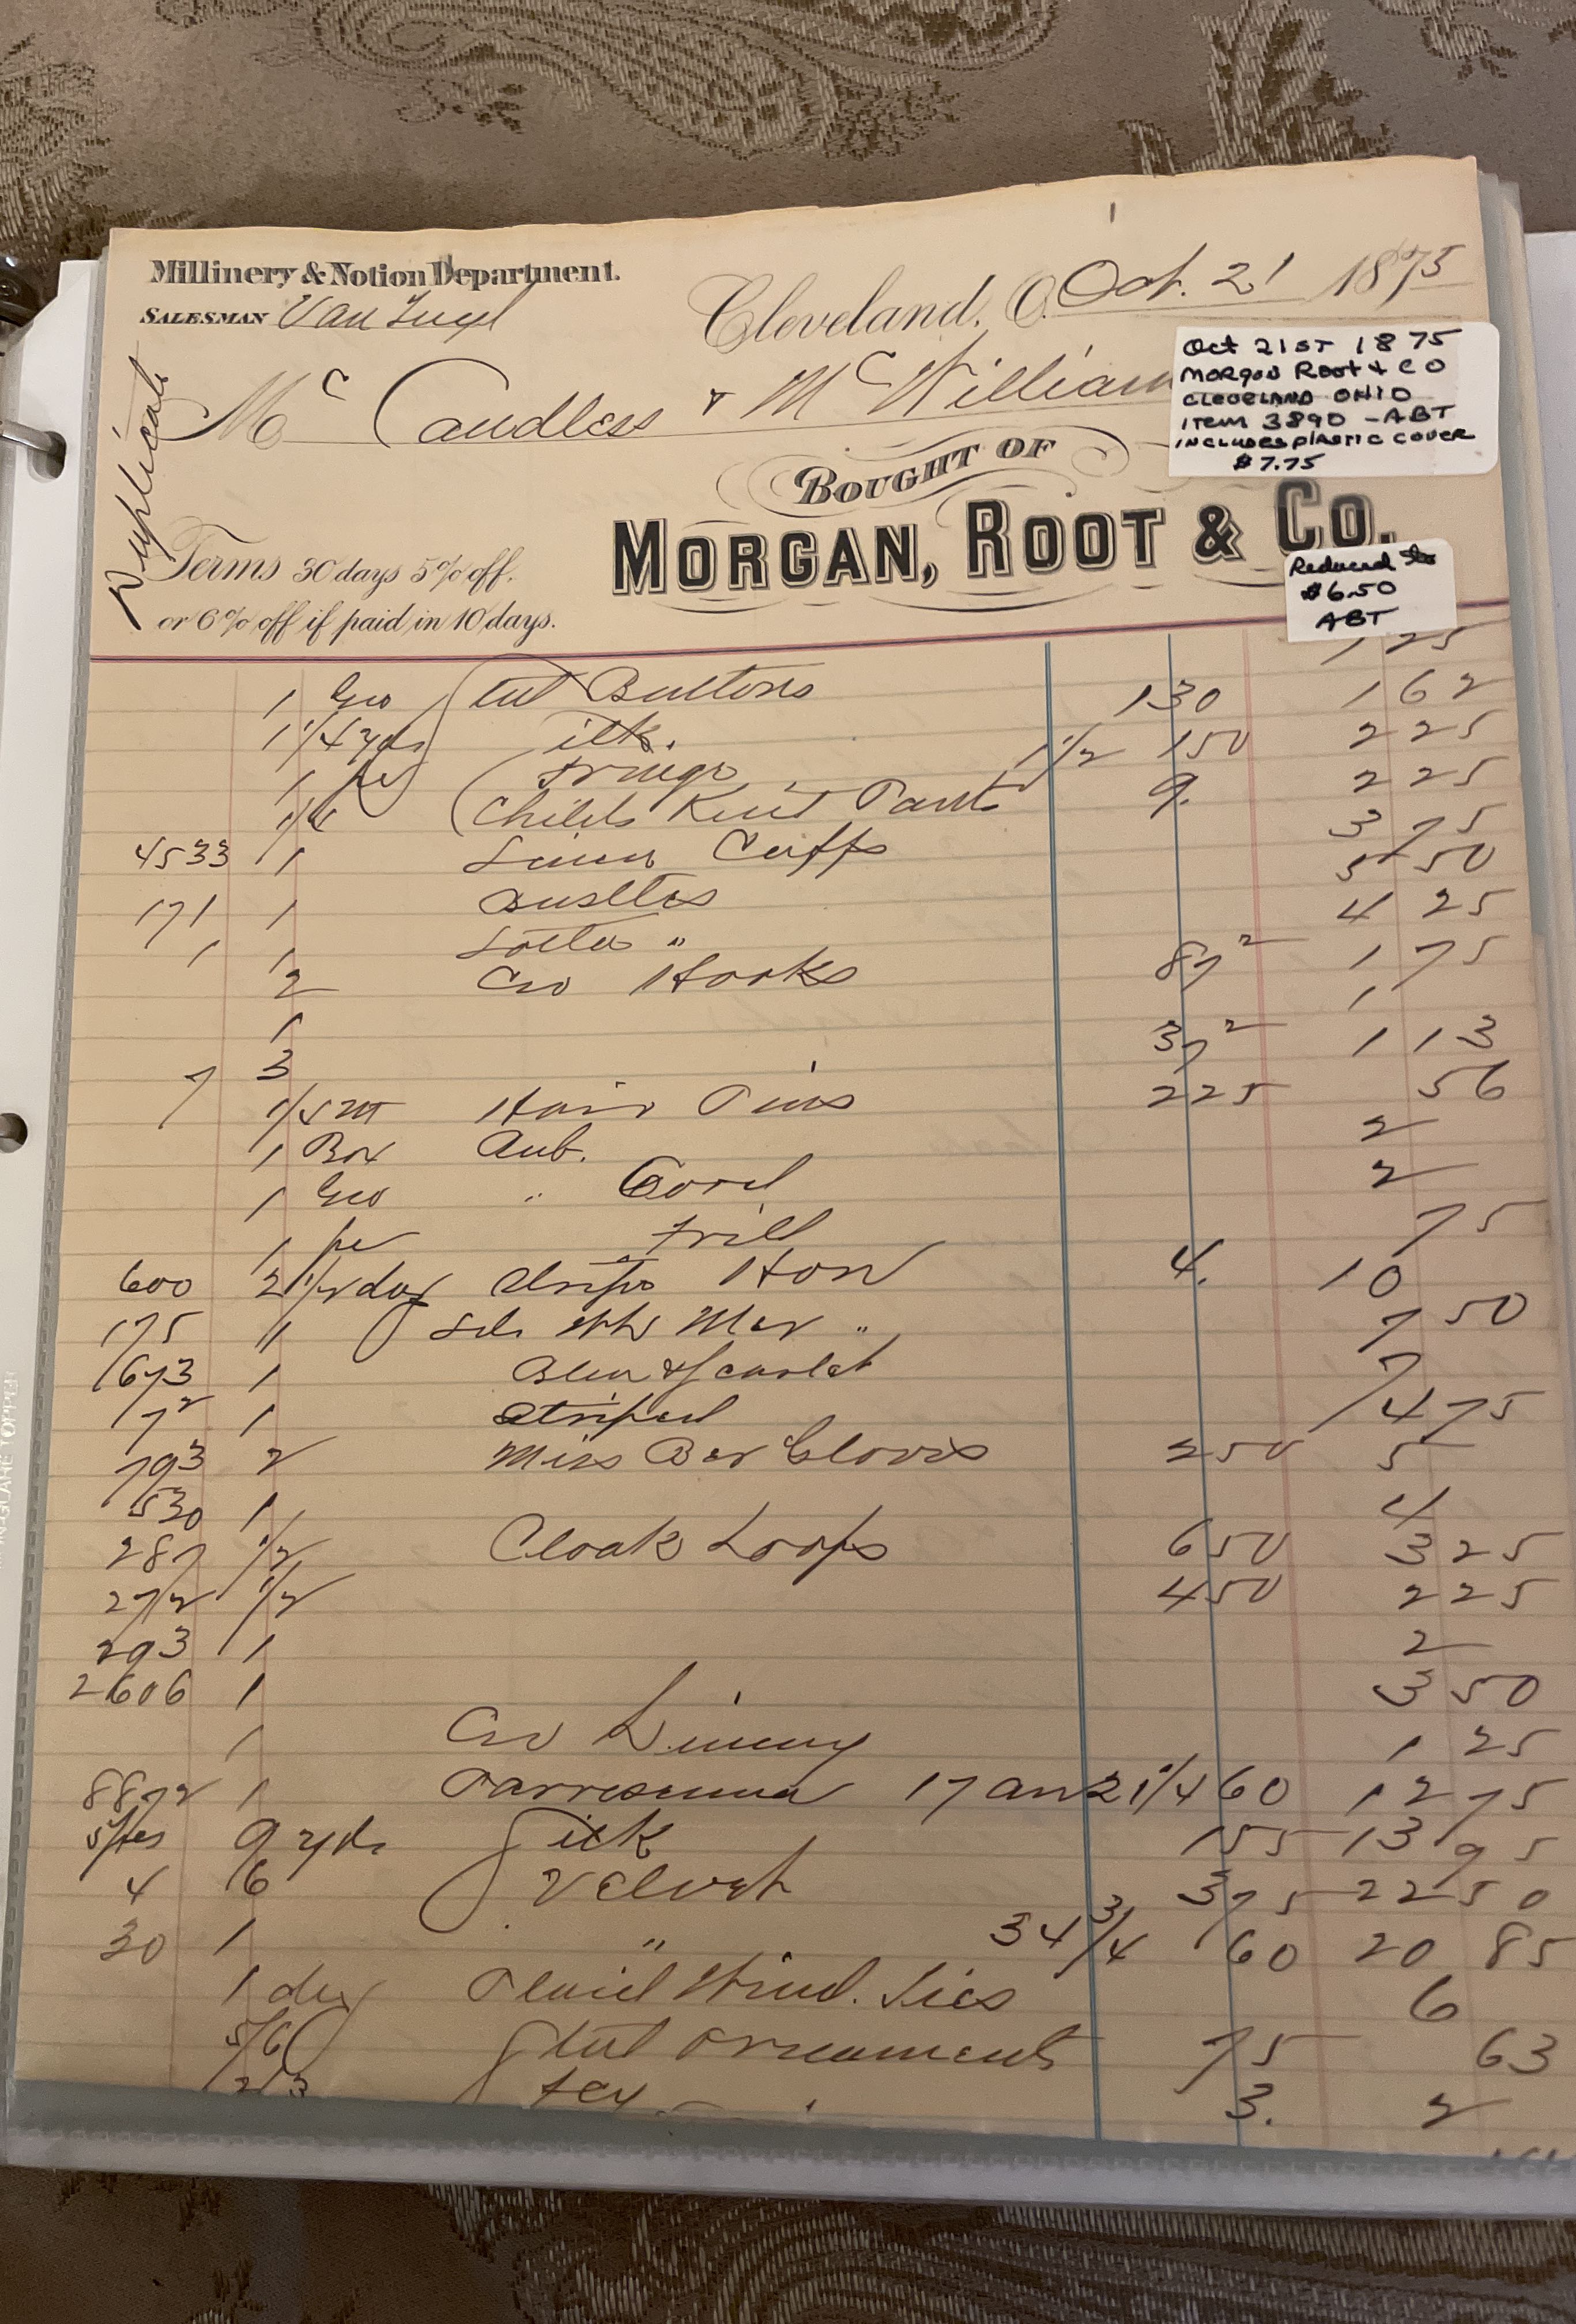 Millinery & Notion Department.
SALESMAN
Cleveland, O. Oct. 21 1875
Duplicate
Mc Candless & McWilliam
BOUGHT OF
MORGAN, ROOT & CO.
Terms 30 days 5% off.
or 6% off if paid in 10 days.
Oct 21ST 1875
MORGAN ROOT & CO
CLEVELAND OHIO
ITEM 3890 - ABT
INCLUDES PLASTIC COVER
$7.75
Reduced to
$6.50
ABT
1 25
1 Gro Steel Buttons
1 1/4 yds Silk. 130 1 62
1 pc Fringe 1 1/2 150 2 25
1/4 Childs Knit Pants 9. 2 25
4533 1 Linen Cuffs 3 75
171 1 Bustles 5 50
1 1 " 4 25
2 Hooks 87 2 1 75
1 1
7 3 37 2 1 13
Hair Pins 225 56
1 Box 2
1 Gro " Cord 2
1 pc Frill 75
600 2 1/2 doz Hose 4. 10
175 11 " 7 50
1673 1 & Scarlet 7
1 Striped 4 75
793 2 Miss Gloves 250 5
530 1 4
287 1/2 Cloak Loops 650 3 25
1/2 450 2 25
293 1 2
2606 1 3 50
1 1 25
8872 1 17 21 1/4 60 12 75
9 yds Silk 155 13 95
4 6 Velvet 375 22 50
30 1 " 34 3/4 60 20 85
1 doz Plaid Wind. Ties 6
5/6 Steel Ornaments 75 63
2/3 3. 2